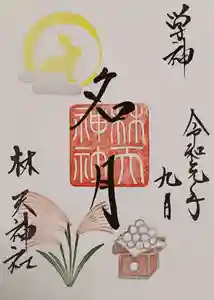 学神
名月
令和元年
九月
林天神社
林天神社